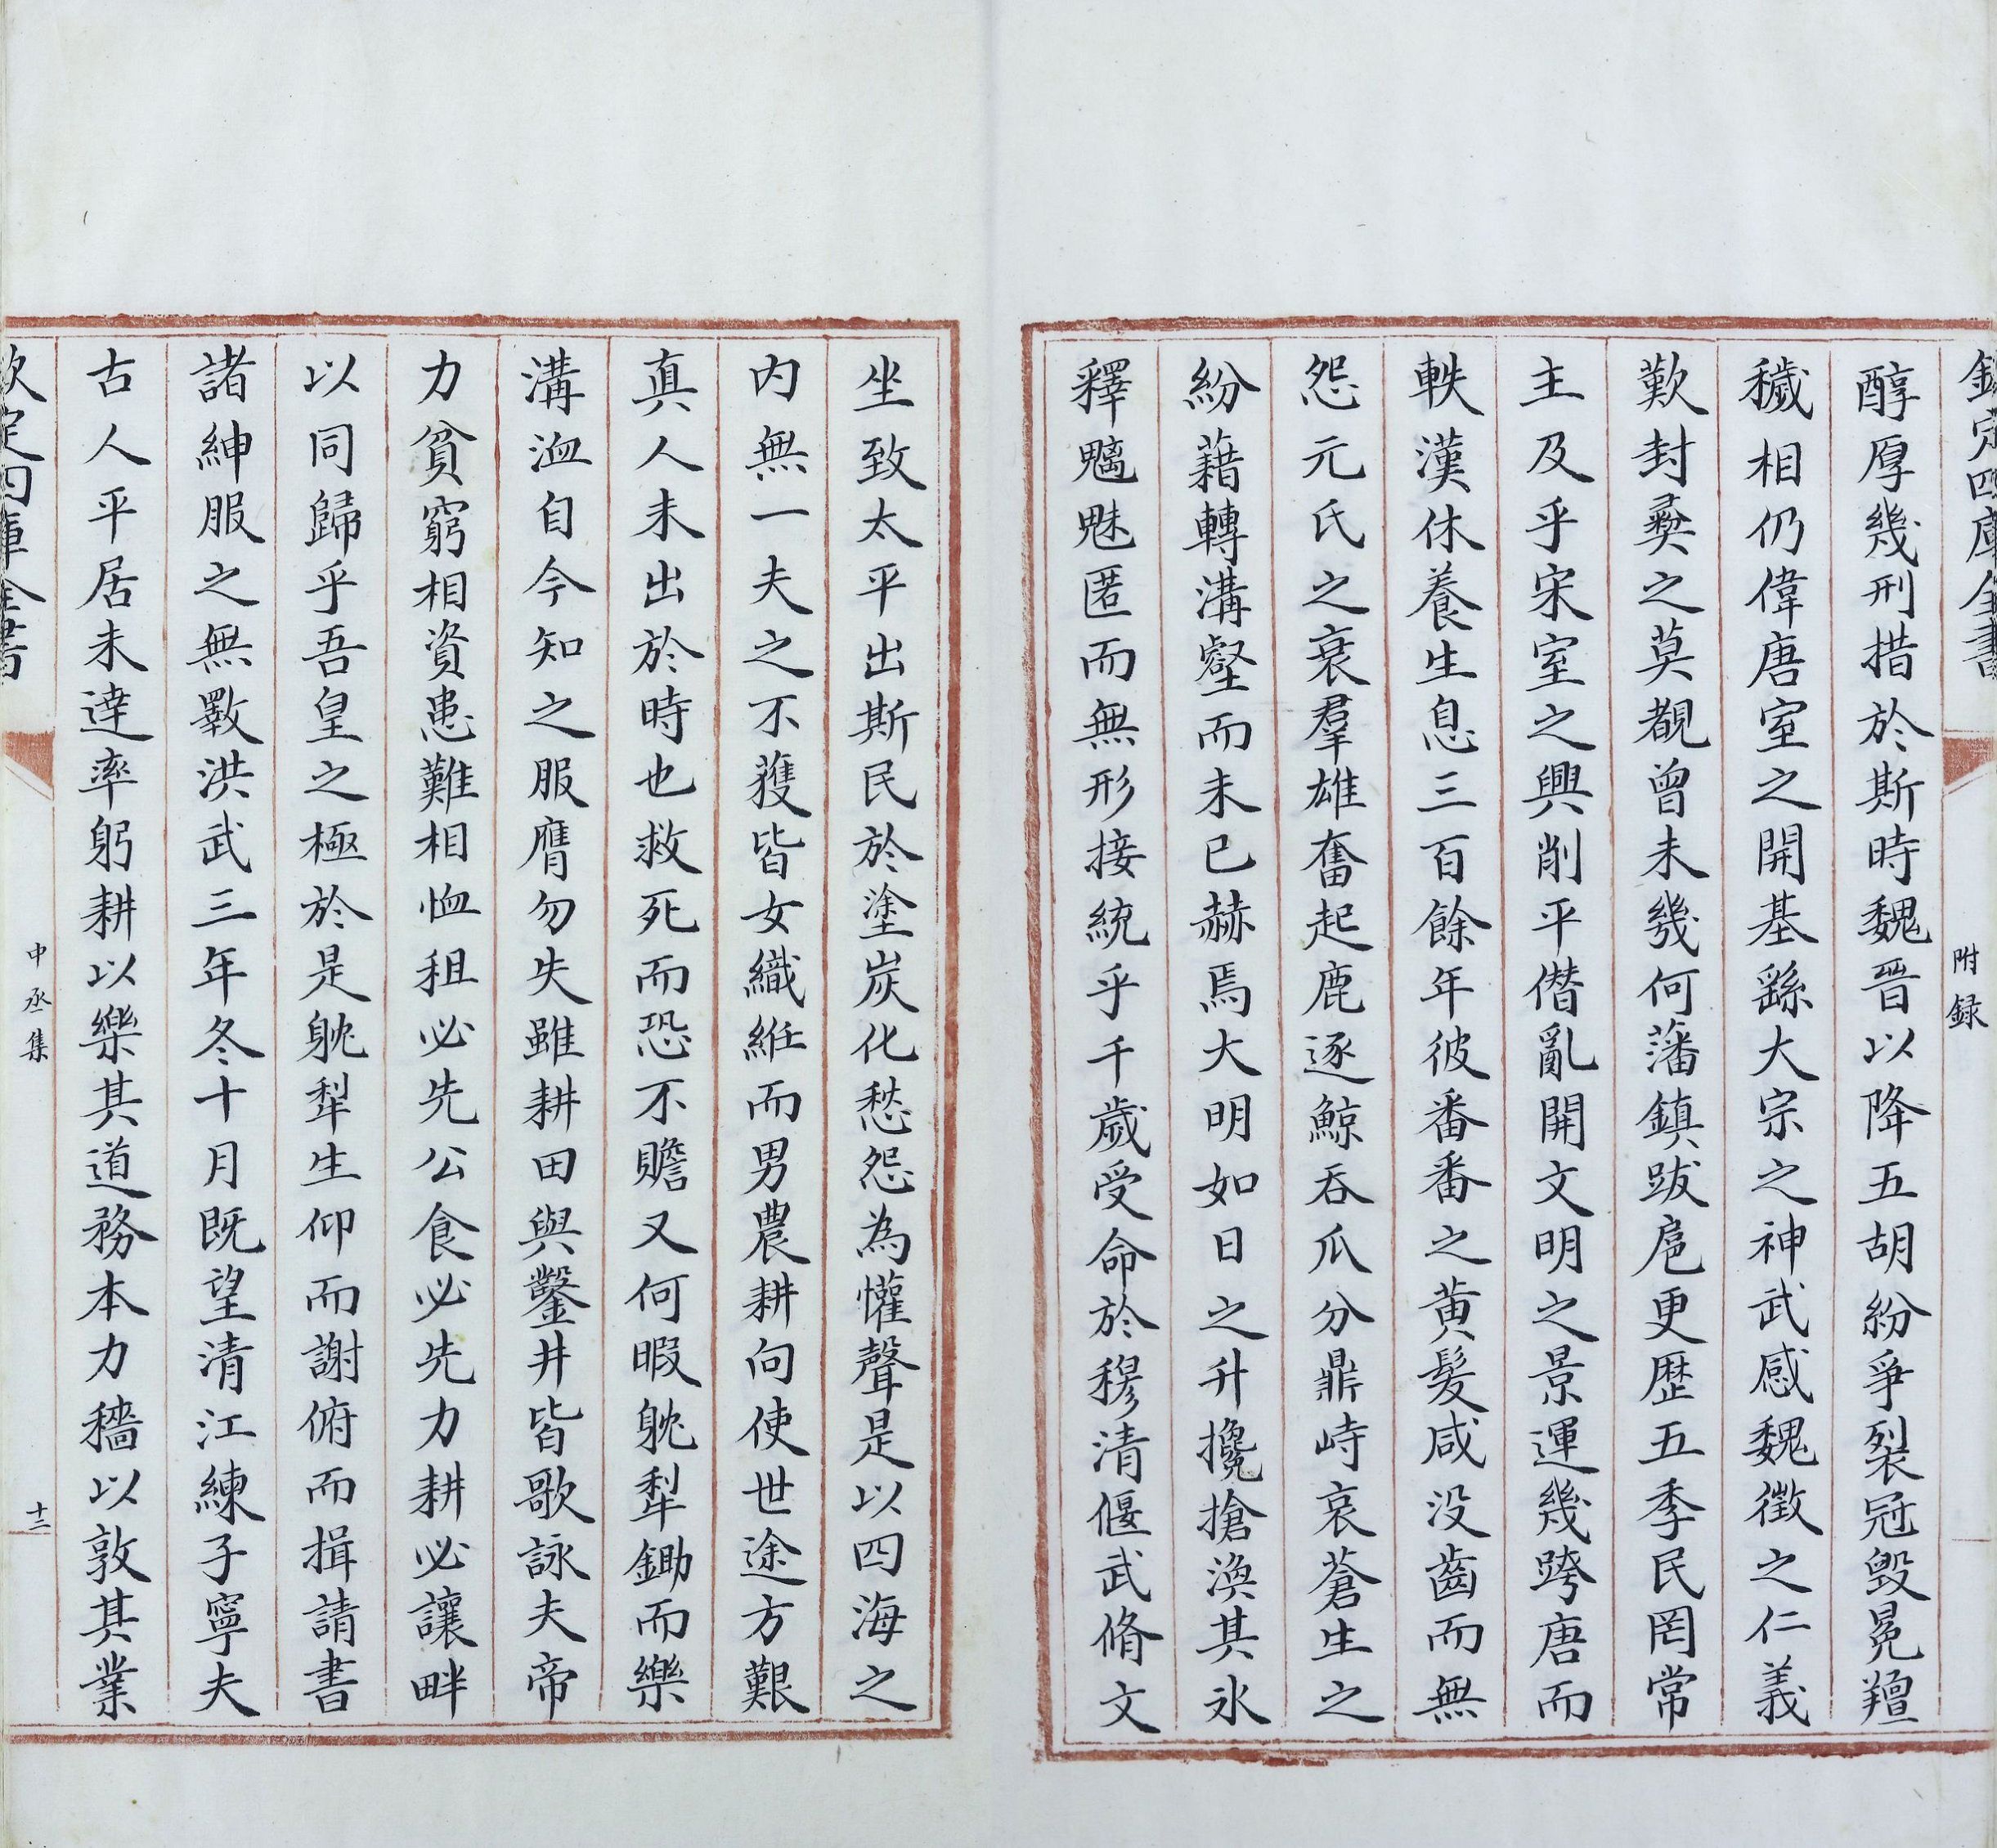 欽定四庫全書
附録
醇厚幾刑措於斯時魏晉以降五胡紛爭裂冠毀冕羶
穢相仍偉唐室之開基繇大宗之神武感魏徵之仁義
歎封彛之莫覩曾未幾何藩鎮跋扈更歴五季民罔常
主及乎宋室之興削平僭亂開文明之景運幾跨唐而
軼漢休養生息三百餘年彼番番之黄髪咸没齒而無
怨元氏之衰羣雄奮起鹿逐鯨吞瓜分鼎峙哀蒼生之
紛藉轉溝壑而未已赫焉大明如日之升攙搶渙其氷
釋魑魅匿而無形接統乎千歲受命於穆清偃武脩文
坐致太平出斯民於塗炭化愁怨為懽聲是以四海之
内無一夫之不獲皆女織絍而男農耕向使世途方艱
真人未出於時也救死而恐不贍又何暇躭犁鋤而樂
溝洫自今知之服膺勿失雖耕田與鑿井皆歌詠夫帝
力貧窮相資患難相恤租必先公食必先力耕必讓畔
以同歸乎吾皇之極於是躭犁生仰而謝俯而揖請書
諸紳服之無斁洪武三年冬十月既望清江練子寧夫
古人平居未達率躬耕以樂其道務本力穡以敦其業
欽定四庫全書
中丞集
十三